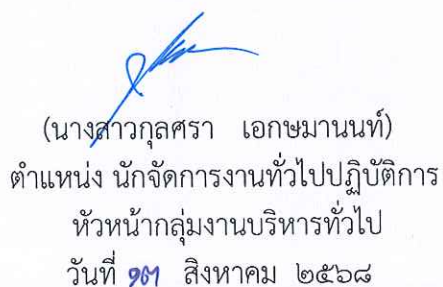 (นางสาวกุลศรา เอกษมานนท์)
ตำแหน่ง นักจัดการงานทั่วไปปฏิบัติการ
หัวหน้ากลุ่มงานบริหารทั่วไป
วันที่ ๑๓ สิงหาคม ๒๕๖๘